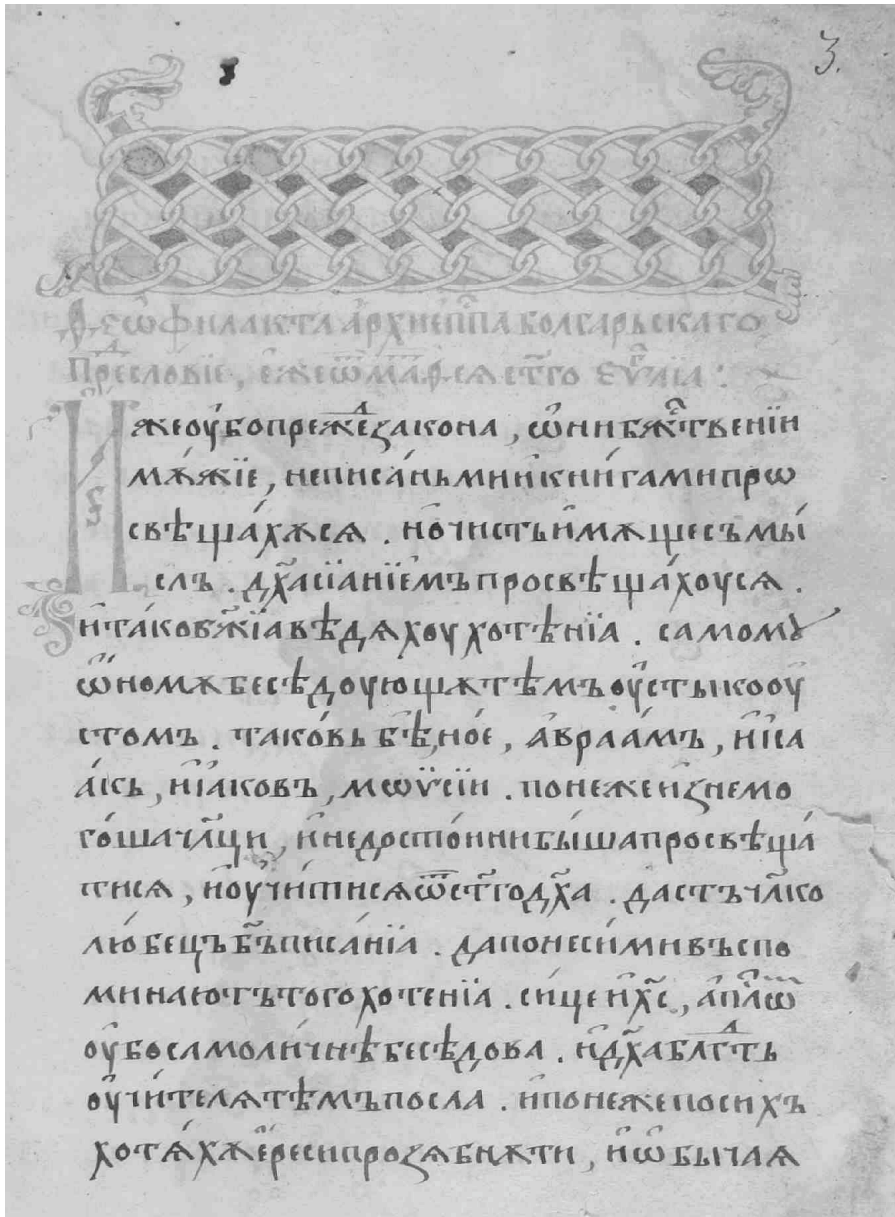 3.
Ѳеѡфилакта архиеп҃па болгарьскаго
Пре́словїе, е́же ѿ маѳ҃ѳ ст҃го еѵ҃лїа :
Иже оу҆бо преже закона, ѡ҆ни бж҃ствені́и
мѫжїе, не писа́ньми и҆ кни́гами про
свѣща́хѫсѧ . но чисть и҆мѫще съмы́
слъ . дх҃а сїанїе́мъ просвѣща́хоусѧ .
и҆ та́ко бж҃їа вѣдѧхоу хотѣнїа . самомꙋ
ѡ҆номѫ бесѣдоующѫ тѣмъ оу҆сты ко оу
стомъ . тако́вь бѣ, но́е, а҆враа́мъ, и҆ їса
а́кь, и҆ ї҆а́ковъ, мѡѵсїи . понеже и҆знемо
го́ша чл҃ци, и҆ недосто́ини бы́ша просвѣща́
тисѧ, и҆ оу҆чи́тисѧ ѿ ст҃го дх҃а . дастъ чл҃ко
лю́бецъ бъ҃ писа́нїа . да поне сими въспо
минаютъ того хотенїа . си́це и҆ хс҃, а҆пл҃ѡм
оу҆бо самоли́чнѣ бесѣдова . и҆ дх҃а блг҃ть
оу҆чи́телѧ тѣмъ посла . и҆ понеже по сихъ
хотѧ́хѫ е҆́реси прозѧбнѫти, и҆ ѡ҆бычаѧ